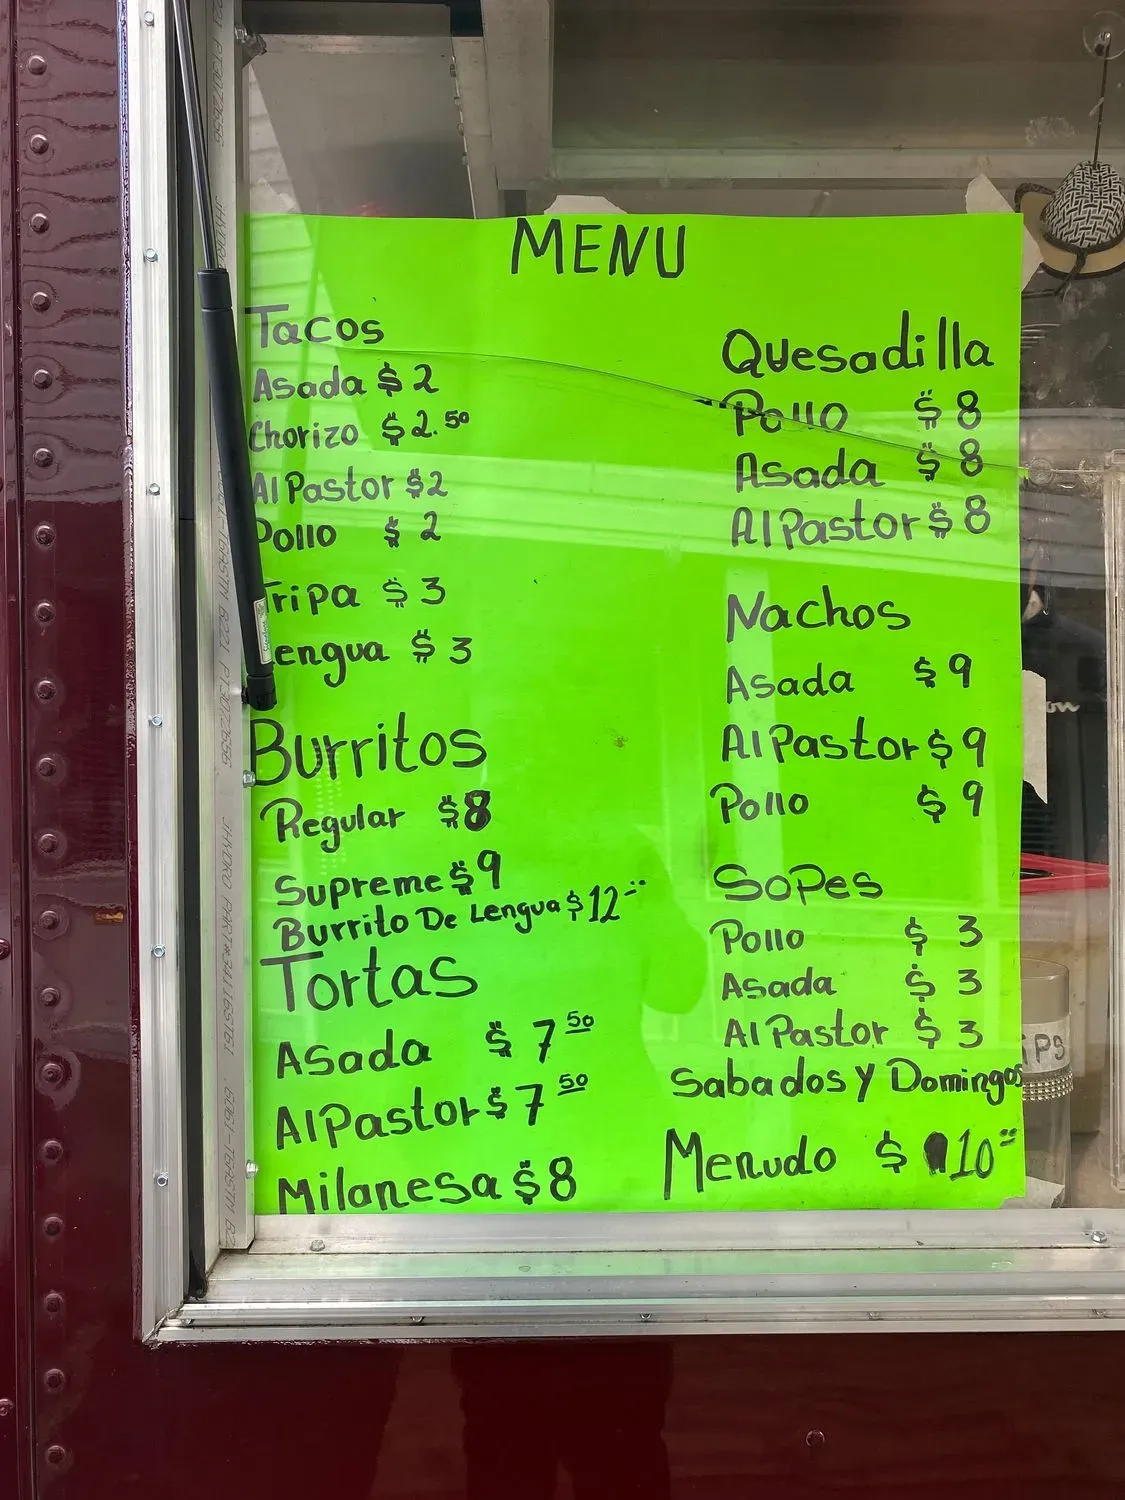 MENU
Tacos
Asada $2
Chorizo $2.50
Al Pastor $2
Pollo $2
Tripa $3
Lengua $3
Burritos
Regular $8
Supreme $9
Burrito De Lengua $12
Tortas
Asada $7 50
Al Pastor $7 50
Milanesa $8
Quesadilla
Pollo $8
Asada $8
Al Pastor $8
Nachos
Asada $9
Al Pastor $9
Pollo $9
Sopes
Pollo $3
Asada $3
Al Pastor $3
Sabados y Domingos
Menudo $10